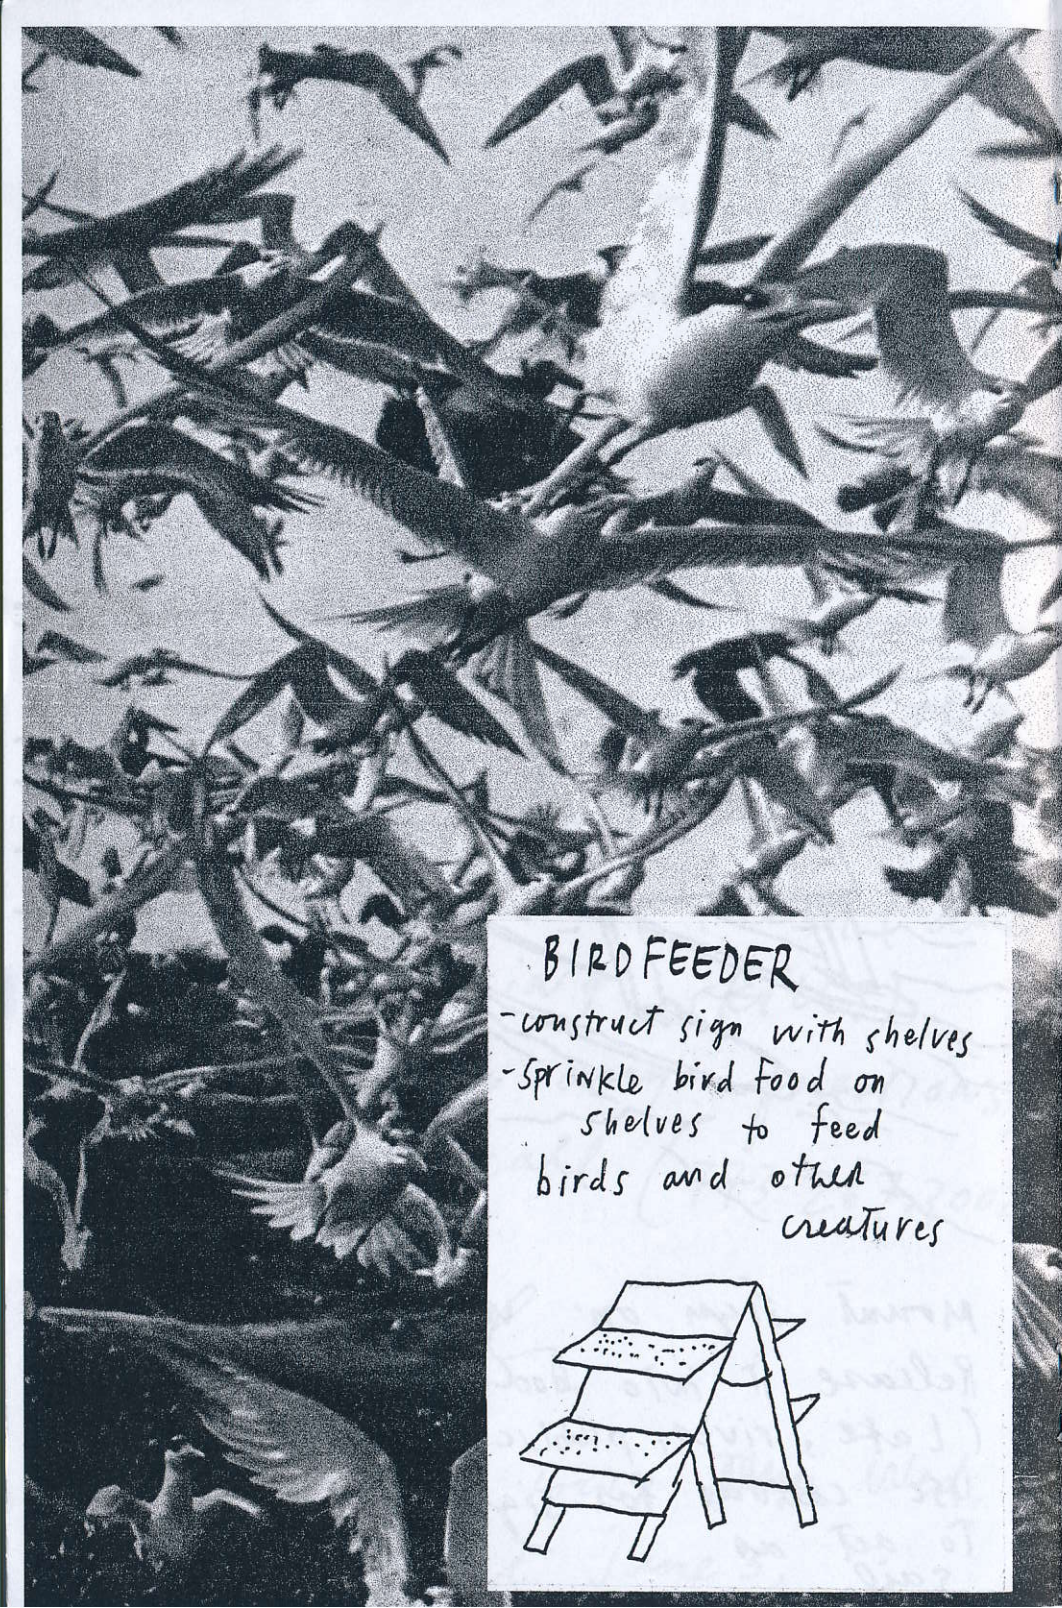 BIRDFEEDER
-construct sign with shelves
-sprinkle bird food on
shelves to feed
birds and other
creatures